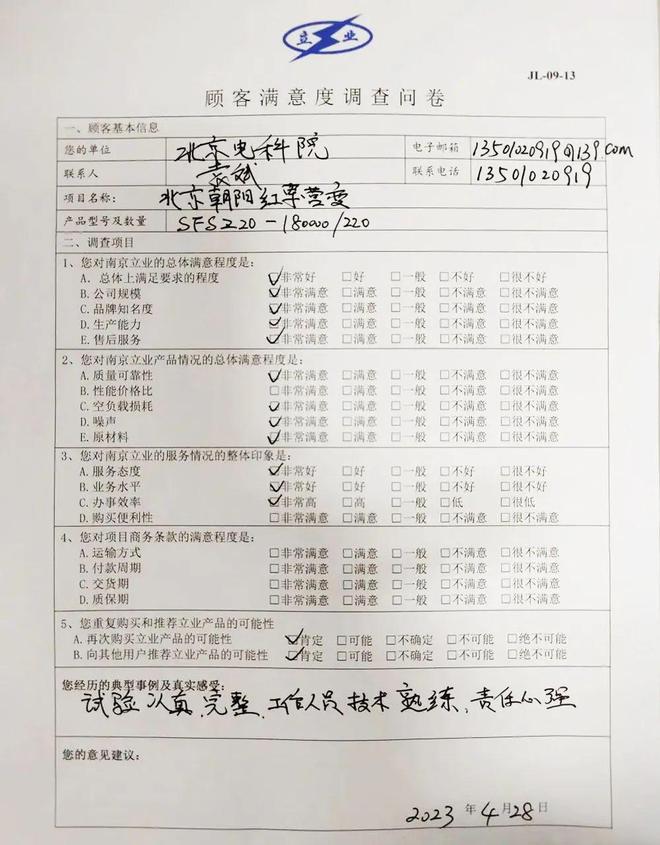 立业
JL-09-13
顾客满意度调查问卷
一、顾客基本信息
您的单位 北京电科院 电子邮箱 13501020919@139.com
联系人 袁斌 联系电话 13501020919
项目名称: 北京朝阳红军营变
产品型号及数量 SFSZ20-180000/220
二、调查项目
1、您对南京立业的总体满意程度是:
A. 总体上满足要求的程度 ☑非常好 □好 □一般 □不好 □很不好
B.公司规模 ☑非常满意 □满意 □一般 □不满意 □很不满意
C.品牌知名度 ☑非常满意 □满意 □一般 □不满意 □很不满意
D.生产能力 ☑非常满意 □满意 □一般 □不满意 □很不满意
E.售后服务 ☑非常满意 □满意 □一般 □不满意 □很不满意
2、您对南京立业产品情况的总体满意程度是:
A.质量可靠性 ☑非常满意 □满意 □一般 □不满意 □很不满意
B.性能价格比 □非常满意 □满意 □一般 □不满意 □很不满意
C.空负载损耗 ☑非常满意 □满意 □一般 □不满意 □很不满意
D.噪声 ☑非常满意 □满意 □一般 □不满意 □很不满意
E.原材料 ☑非常满意 □满意 □一般 □不满意 □很不满意
3、您对南京立业的服务情况的整体印象是:
A.服务态度 ☑非常好 □好 □一般 □不好 □很不好
B.业务水平 ☑非常好 □好 □一般 □不好 □很不好
C.办事效率 ☑非常高 □高 □一般 □低 □很低
D.购买便利性 □非常满意 □满意 □一般 □不满意 □很不满意
4、您对项目商务条款的满意程度是:
A.运输方式 □非常满意 □满意 □一般 □不满意 □很不满意
B.付款周期 □非常满意 □满意 □一般 □不满意 □很不满意
C.交货期 □非常满意 □满意 □一般 □不满意 □很不满意
D.质保期 □非常满意 □满意 □一般 □不满意 □很不满意
5、您重复购买和推荐立业产品的可能性
A.再次购买立业产品的可能性 ☑肯定 □可能 □不确定 □不可能 □绝不可能
B.向其他用户推荐立业产品的可能性 ☑肯定 □可能 □不确定 □不可能 □绝不可能
您经历的典型事例及真实感受:
试验认真、完整、工作人员技术熟练、责任心强
您的意见建议:
2023 年 4 月 28 日